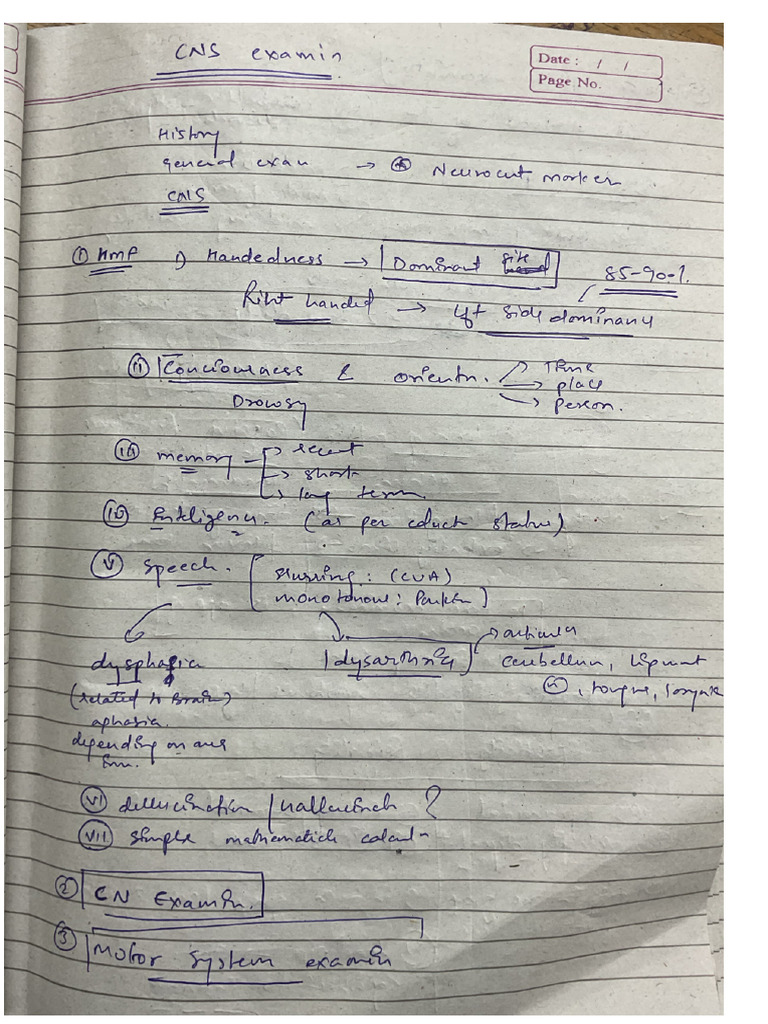 CNS examin
Date : / /
Page No.
History
general exam → * Neurocut. marker
CNS
① HMF i) Handedness → Dominant
85-90-1.
Right handed → Lft side dominant
ii) Conciousness & orientn. → Time
→ place
→ person.
Drowsy
iii) memory → recent
→ short
→ long term
iv) Intelligence. (as per educt status)
v) speech. [ slurring : (CVA)
monotonous : Parkin ]
dysphasia dysarthria → articula
cerebellum, lip
(related to Brain) , tongue, larynx
aphasia.
depending on area
vi) / Hallucinatn ?
vii) simple mathematicl calculn
② CN Examin.
③ Motor system examin